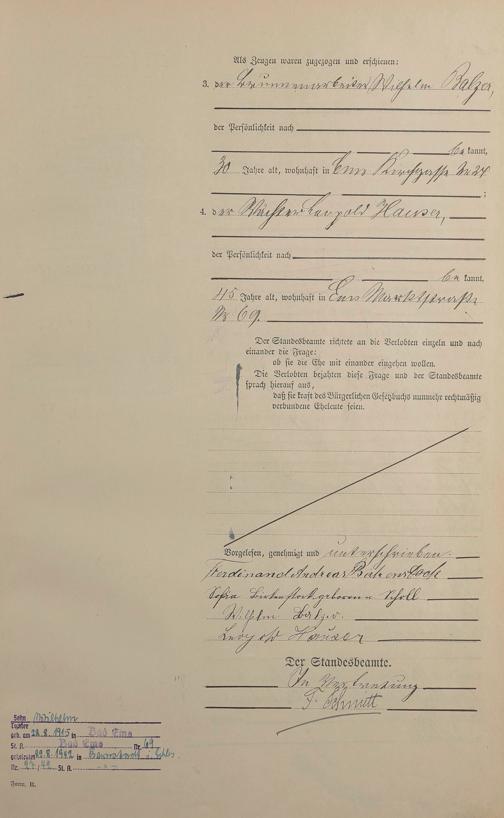 Als Zeugen waren zugezogen und erschienen:
3. der Brunnenarbeiter Wilhelm Balzer,
der Persönlichkeit nach
be kannt,
30 Jahre alt, wohnhaft in Ems Kirchgasse Nr 24
;
4. der Wächter Leopold Hauser,
der Persönlichkeit nach
be kannt,
45 Jahre alt, wohnhaft in Ems Marktstraße
Nr 69.
Der Standesbeamte richtete an die Verlobten einzeln und nach
einander die Frage:
ob sie die Ehe mit einander eingehen wollen.
Die Verlobten bejahten diese Frage und der Standesbeamte
sprach hierauf aus,
daß sie kraft des Bürgerlichen Gesetzbuchs nunmehr rechtmäßig
verbundene Eheleute seien.
Vorgelesen, genehmigt und unterschrieben.
Ferdinand Andreas
Sofia geborene Scholl
Wilhelm Balzer.
Leopold Hauser
Der Standesbeamte.
In Vertretung
Schmitt
Sohn Wilhelm
Tochter
geb. am 28.8.1915 in Bad Ems
St. A. Bad Ems Nr. 69
geheiratet 29.8.1942 in
Nr. 27/42 St. A.
Form. B.